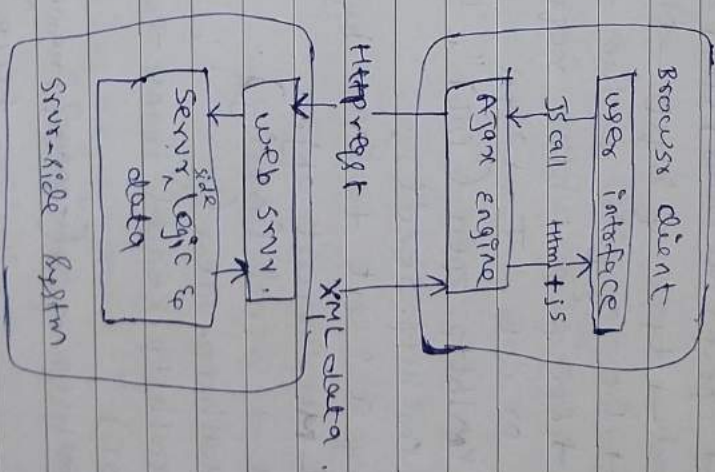 Browsr client
user interface
JS call Html+js
Ajax Engine
Http reqst
XML data.
web srvr.
Servr side logic &
data
Srvr-side systm